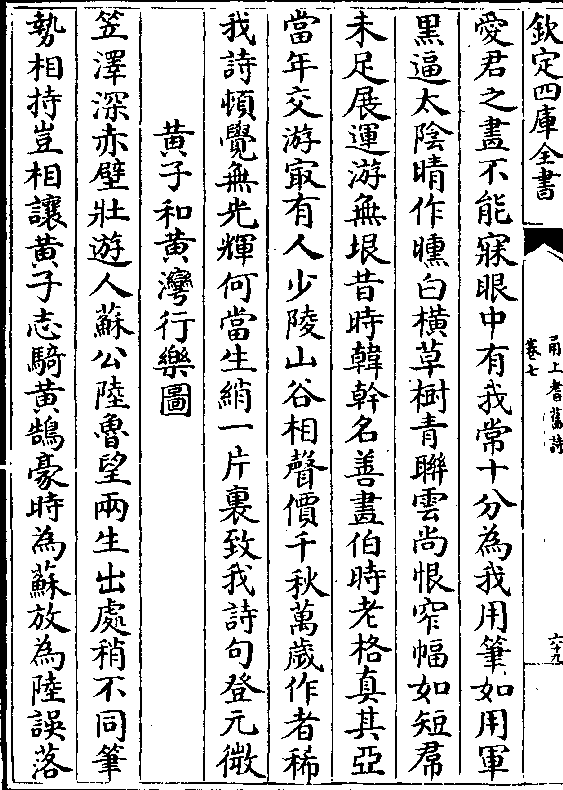 欽定四庫全書
甬上耆舊詩
卷七
六十九
愛君之畫不能寐眼中有我常十分為我用筆如用軍
黑逼太陰晴作曛白橫草樹青聯雲尚恨窄幅如短帬
未足展運游無垠昔時韓幹名善畫伯時老格真其亞
當年交游㝡有人少陵山谷相聲價千秋萬歲作者稀
我詩頓覺無光輝何當生綃一片裏致我詩句登元微
黃子和黃灣行樂圖
笠澤深赤壁壯遊人蘇公陸魯望兩生出處稍不同筆
勢相持豈相讓黃子志騎黃鵠豪時為蘇放為陸誤落